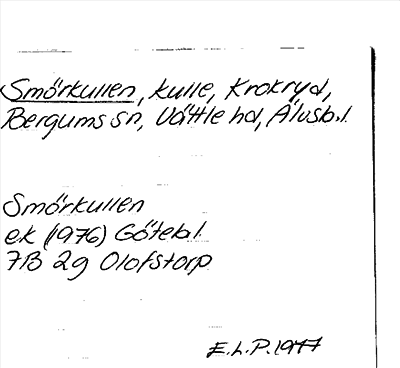 Smörkullen, kulle, Krokryd,
Bergums sn, Vättle hd, Älvsb.l.
Smörkullen
ek (1976) Göteb.l.
7B 2g Olofstorp
E.L.P. 1977